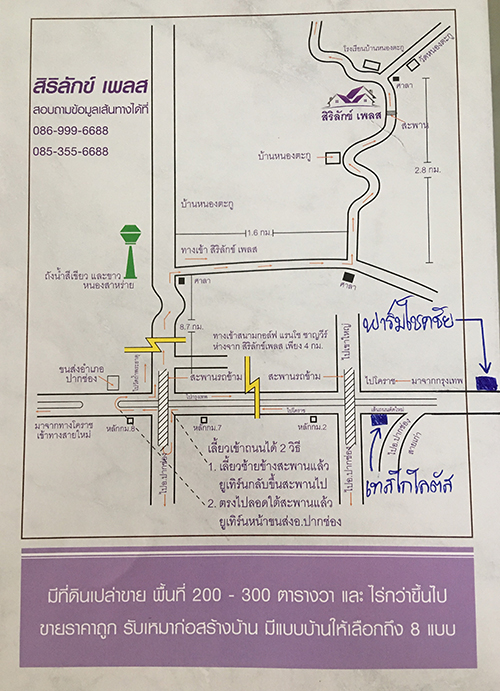 สิริลักข์ เพลส
สอบถามข้อมูลเส้นทางได้ที่
086-999-6688
085-355-6688
โรงเรียนบ้านหนองตะกู
วัดหนองตะกู
ศาลา
สิริลักข์ เพลส
สะพาน
บ้านหนองตะกู
2.8 กม.
บ้านหนองตะกู
1.6 กม.
ทางเข้า สิริลักข์ เพลส
ถังน้ำสีเขียว และขาว
หนองสาหร่าย
ศาลา
ศาลา
8.7 กม.
ทางเข้าสนามกอล์ฟ แรนโช ชาญวีร์
ห่างจาก สิริลักข์เพลส เพียง 4 กม.
ไปเขาใหญ่
ฟาร์มโชคชัย
ขนส่งอำเภอ
ปากช่อง
สะพานรถข้าม
สะพานรถข้าม
ไปโคราช
มาจากกรุงเทพ
ไปกรุงเทพ
ไปโคราช
เส้นถนนตัดใหม่
มาจากทางโคราช
เข้าทางสายใหม่
หลักกม.8
หลักกม.7
หลักกม.2
ไปอ.ปากช่อง
ไปอ.ปากช่อง
ไปอ.ปากช่อง
สายเก่า
เทสโก้โลตัส
เลี้ยวเข้าถนนได้ 2 วิธี
1. เลี้ยวซ้ายข้างสะพานแล้ว
ยูเทิร์นกลับขึ้นสะพานไป
2. ตรงไปลอดใต้สะพานแล้ว
ยูเทิร์นหน้าขนส่งอ.ปากช่อง
มีที่ดินเปล่าขาย พื้นที่ 200 - 300 ตารางวา และ ไร่กว่าขึ้นไป
ขายราคาถูก รับเหมาก่อสร้างบ้าน มีแบบบ้านให้เลือกถึง 8 แบบ